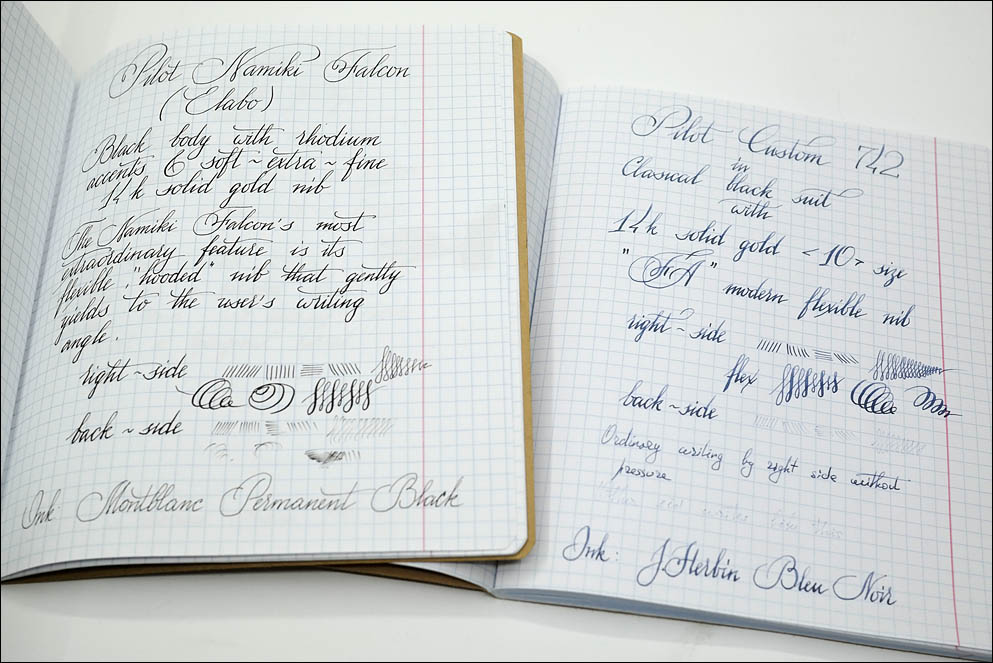 Pilot Namiki Falcon
(Elabo)
Black body with rhodium
accents & soft ~ extra ~ fine
14 k solid gold nib
The Namiki Falcon's most
extraordinary feature is its
flexible, "hooded" nib that gently
yields to the user's writing
angle.
right ~ side
back ~ side
Ink: Montblanc Permanent Black
Pilot Custom 742
in
Classical black suit
with
14 k solid gold <10> size
"FA" modern flexible nib
right ~ side
flex
back ~ side
Ordinary writing by right side without
pressure
Ink: J.Herbin Bleu Noir